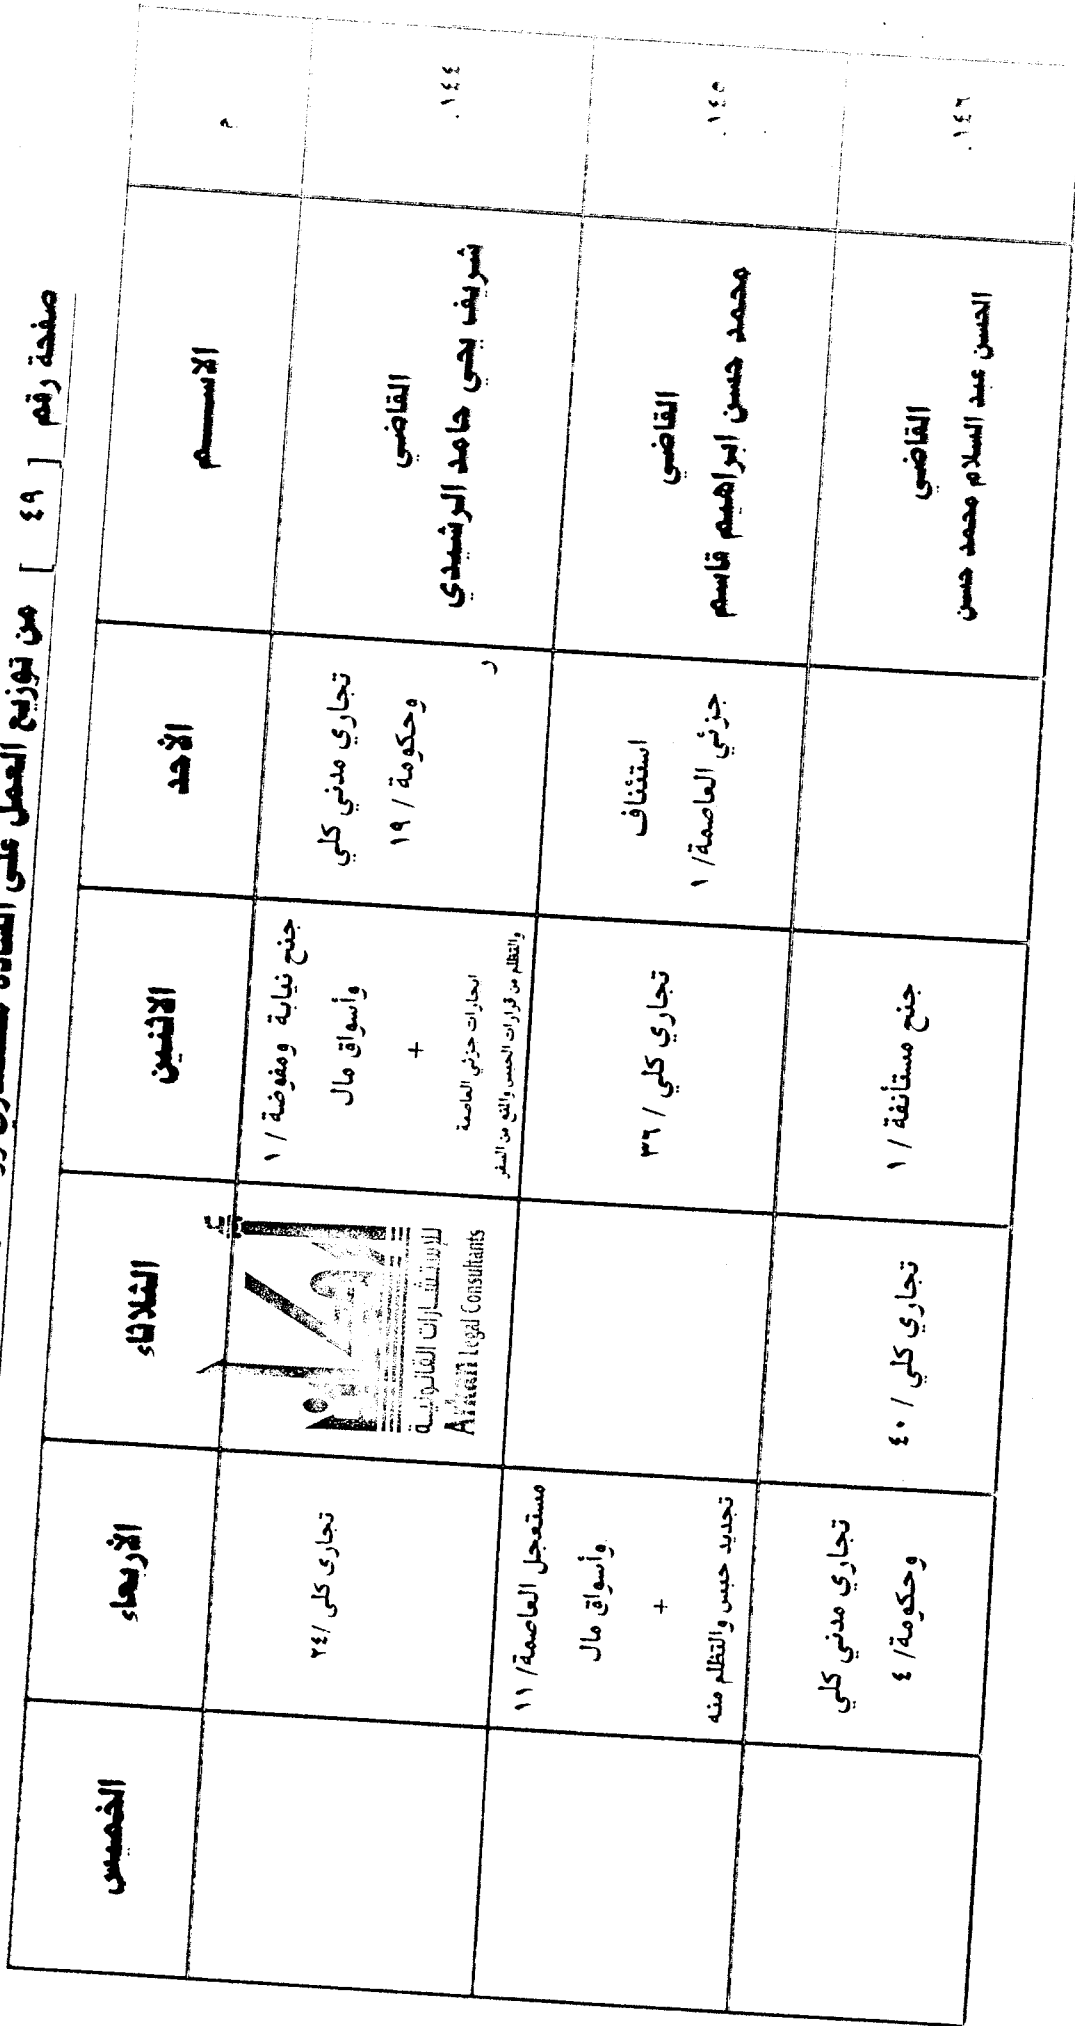 صفحة رقم [ ٤٩ ] من توزيع العمل على السادة
م
الاســـم
الأحد
الاثنين
الثلاثاء
الأربعاء
الخميس
١٤٤.
القاضي
شريف يحي حامد الرشيدي
تجاري مدني كلي
وحكومة / ١٩
ر
جنح نيابة ومفوضة / ١
وأسواق مال
+
ايجارات جزئي العاصمة
والتظلم من قرارات الحبس والمنع من السفر
للإستشارات القانونية
Arkan Legal Consultants
تجارى كلى /٢٤
١٤٥.
القاضي
محمد حسن ابراهيم قاسم
استئناف
جزئي العاصمة/ ١
تجاري كلي / ٣٦
مستعجل العاصمة/ ١١
وأسواق مال
+
تجديد حبس والتظلم منه
١٤٦.
القاضي
الحسن عبد السلام محمد حسن
جنح مستأنفة / ١
تجاري كلي / ٤٠
تجاري مدني كلي
وحكومة/ ٤